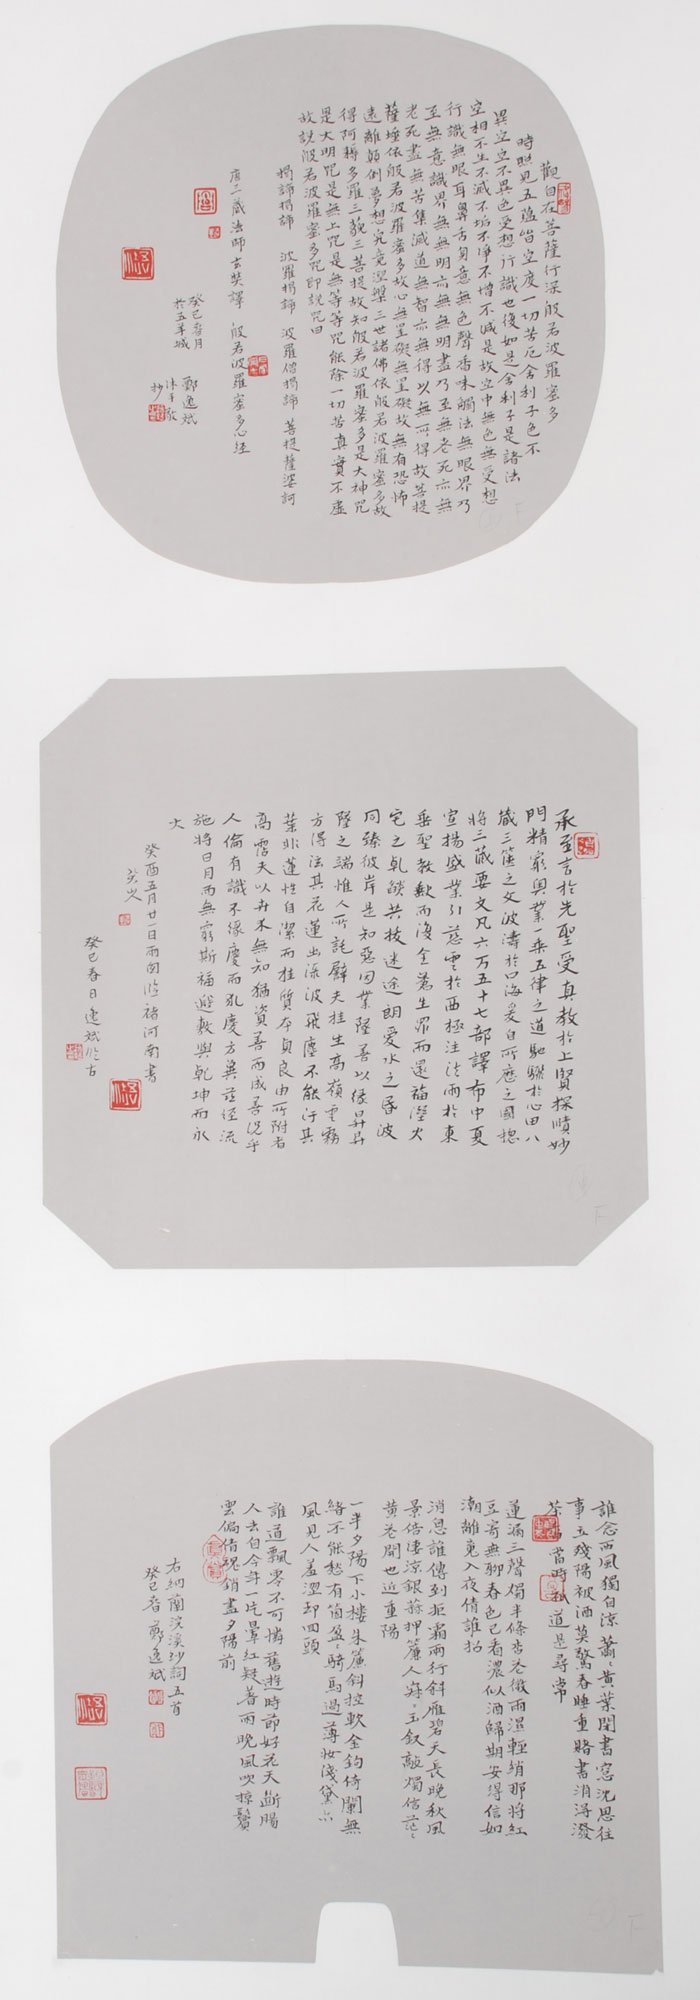 觀自在菩薩行深般若波羅蜜多
時照見五蘊皆空度一切苦厄舍利子色不
異空空不異色受想行識也復如是舍利子是諸法
空相不生不滅不垢不淨不增不減是故空中無色無受想
行識無眼耳鼻舌身意無色聲香味觸法無眼界乃
至無意識界無無明亦無無明盡乃至無老死亦無
老死盡無苦集滅道無智亦無得以無所得故菩提
薩埵依般若波羅蜜多故心無罣礙無罣礙故無有恐怖
遠離顛倒夢想究竟涅槃三世諸佛依般若波羅蜜多故
得阿耨多羅三藐三菩提故知般若波羅蜜多是大神咒
是大明咒是無上咒是無等等咒能除一切苦真實不虛
故說般若波羅蜜多咒即說咒曰
揭諦揭諦 波羅揭諦 波羅僧揭諦 菩提薩婆訶
唐三藏法師玄奘譯 般若波羅蜜多心經
癸巳春月
於五羊城
鄭逸斌
沐手敬
抄
承至言於先聖受真教於上賢探賾妙
門精窮奧業一乘五律之道馳驟於心田八
藏三篋之文波濤於口海爰自所歷之國總
將三藏要文凡六百五十七部譯布中夏
宣揚盛業引慈雲於西極注法雨於東
垂聖教缺而復全蒼生罪而還福溼火
宅之乾燄共拔迷途朗愛水之昏波
同臻彼岸是知惡因業墜善以緣昇昇
墜之端惟人所託譬夫桂生高嶺雲露
方得泫其花蓮出淥波飛塵不能汙其
葉非蓮性自潔而桂質本貞良由所附者
高
人倫有識不緣慶而求慶方冀茲經流
施將日月而無窮斯福遐敷與乾坤而永
大
癸酉五月廿一日雨窗臨褚河南書
癸巳春日逸斌臨古
誰念西風獨自涼蕭蕭黃葉閉書窗沈思往
事立殘陽被酒莫驚春睡重賭書消得潑
茶香當時祇道是尋常
蓮漏三聲燭半條杏花微雨濕輕綃那將紅
豆寄無聊春色已看濃似酒歸期安得信如
潮離魂入夜倩誰招
消息誰傳到拒霜兩行斜雁碧天長晚秋風
景倍淒涼銀蒜押簾人寂寂玉釵敲燭信茫茫
黃花開也近重陽
一半夕陽下小樓朱簾斜控軟金鉤倚闌無
緒不能愁有箇盈盈騎馬過薄妝淺黛亦
風見人羞澀却回頭
誰道飄零不可憐舊遊時節好花天斷腸
人去自今年一片暈紅疑著雨晚風吹掠鬢
雲偏倩魂銷盡夕陽前
右納蘭浣溪沙詞五首
癸巳春鄭逸斌